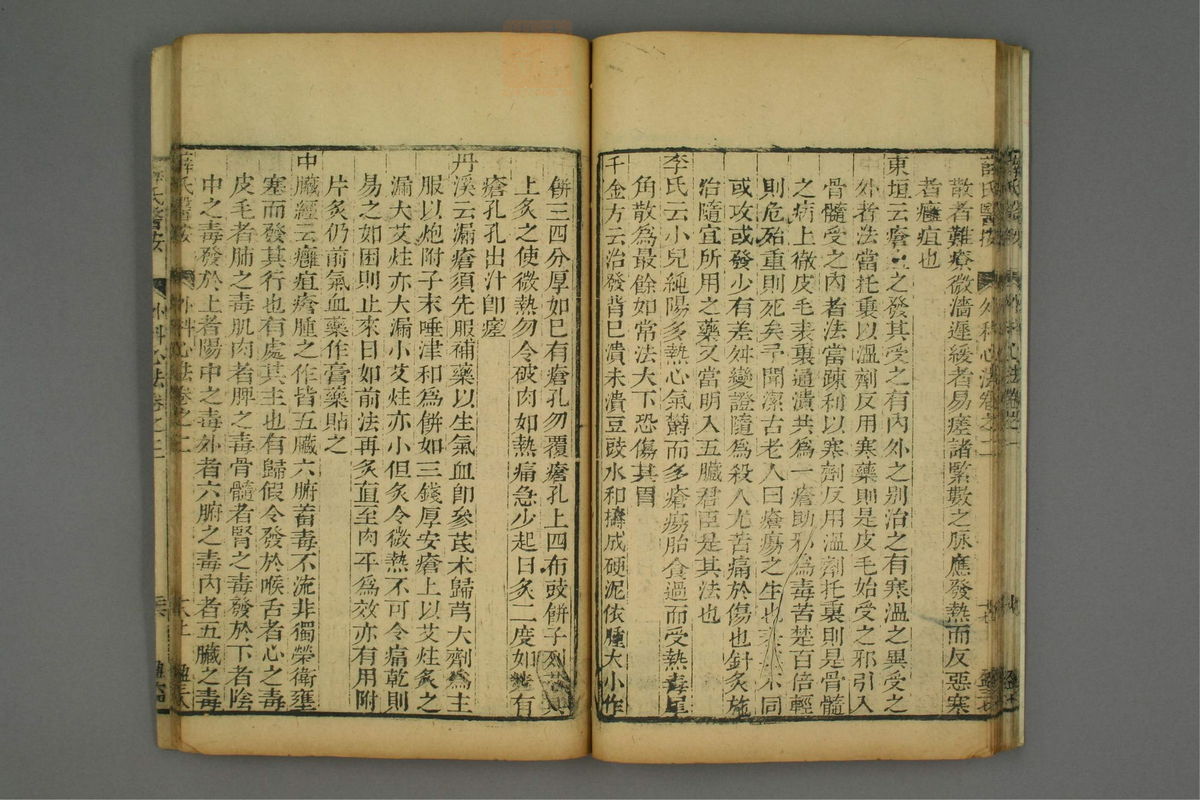 薛氏醫按
外科心法卷之二
散者難療微濇遲緩者易瘥諸緊數之脉應發熱而反惡寒
者癰疽也
東垣云瘡之發其受之有內外之别治之有寒溫之異受之
外者法當托裏以溫劑反用寒藥則是皮毛始受之邪引入
骨髓受之內者法當疎利以寒劑反用溫劑托裏則是骨髓
之病上徹皮毛表裏通潰共爲一瘡助邪爲毒苦楚百倍輕
則危殆重則死矣予聞潔古老人曰瘡瘍之生也不同
或攻或發少有差舛變證隨爲殺人尤苦痛於傷也針灸施
治隨宜所用之藥又當明入五臟君臣是其法也
李氏云小兒純陽多熱心氣欝而多瘡瘍胎食過而受熱毒犀
角散爲最餘如常法大下恐傷其胃
千金方云治發背巳潰未潰豆豉水和擣成硬泥依腫大小作
餅三四分厚如巳有瘡孔勿覆瘡孔上四布豉餅子列艾其
上灸之使微熱勿令破肉如熱痛急少起日灸二度如瘡有
瘡孔孔出汁卽瘥
丹溪云漏瘡須先服補藥以生氣血卽參芪术歸芎大劑爲主
服以炮附子末唾津和爲餅如三錢厚安瘡上以艾炷灸之
漏大艾炷亦大漏小艾炷亦小但灸令微熱不可令痛乾則
易之如困則止來日如前法再灸直至肉平爲效亦有用附
片灸仍前氣血藥作膏藥貼之
中臟經云癰疽瘡腫之作皆五臟六腑蓄毒不流非獨榮衛壅
塞而發其行也有處其主也有歸假令發於喉舌者心之毒
皮毛者肺之毒肌肉者脾之毒骨髓者腎之毒發於下者陰
中之毒發於上者陽中之毒外者六腑之毒內者五臟之毒
薛氏醫按
外科心法卷之二